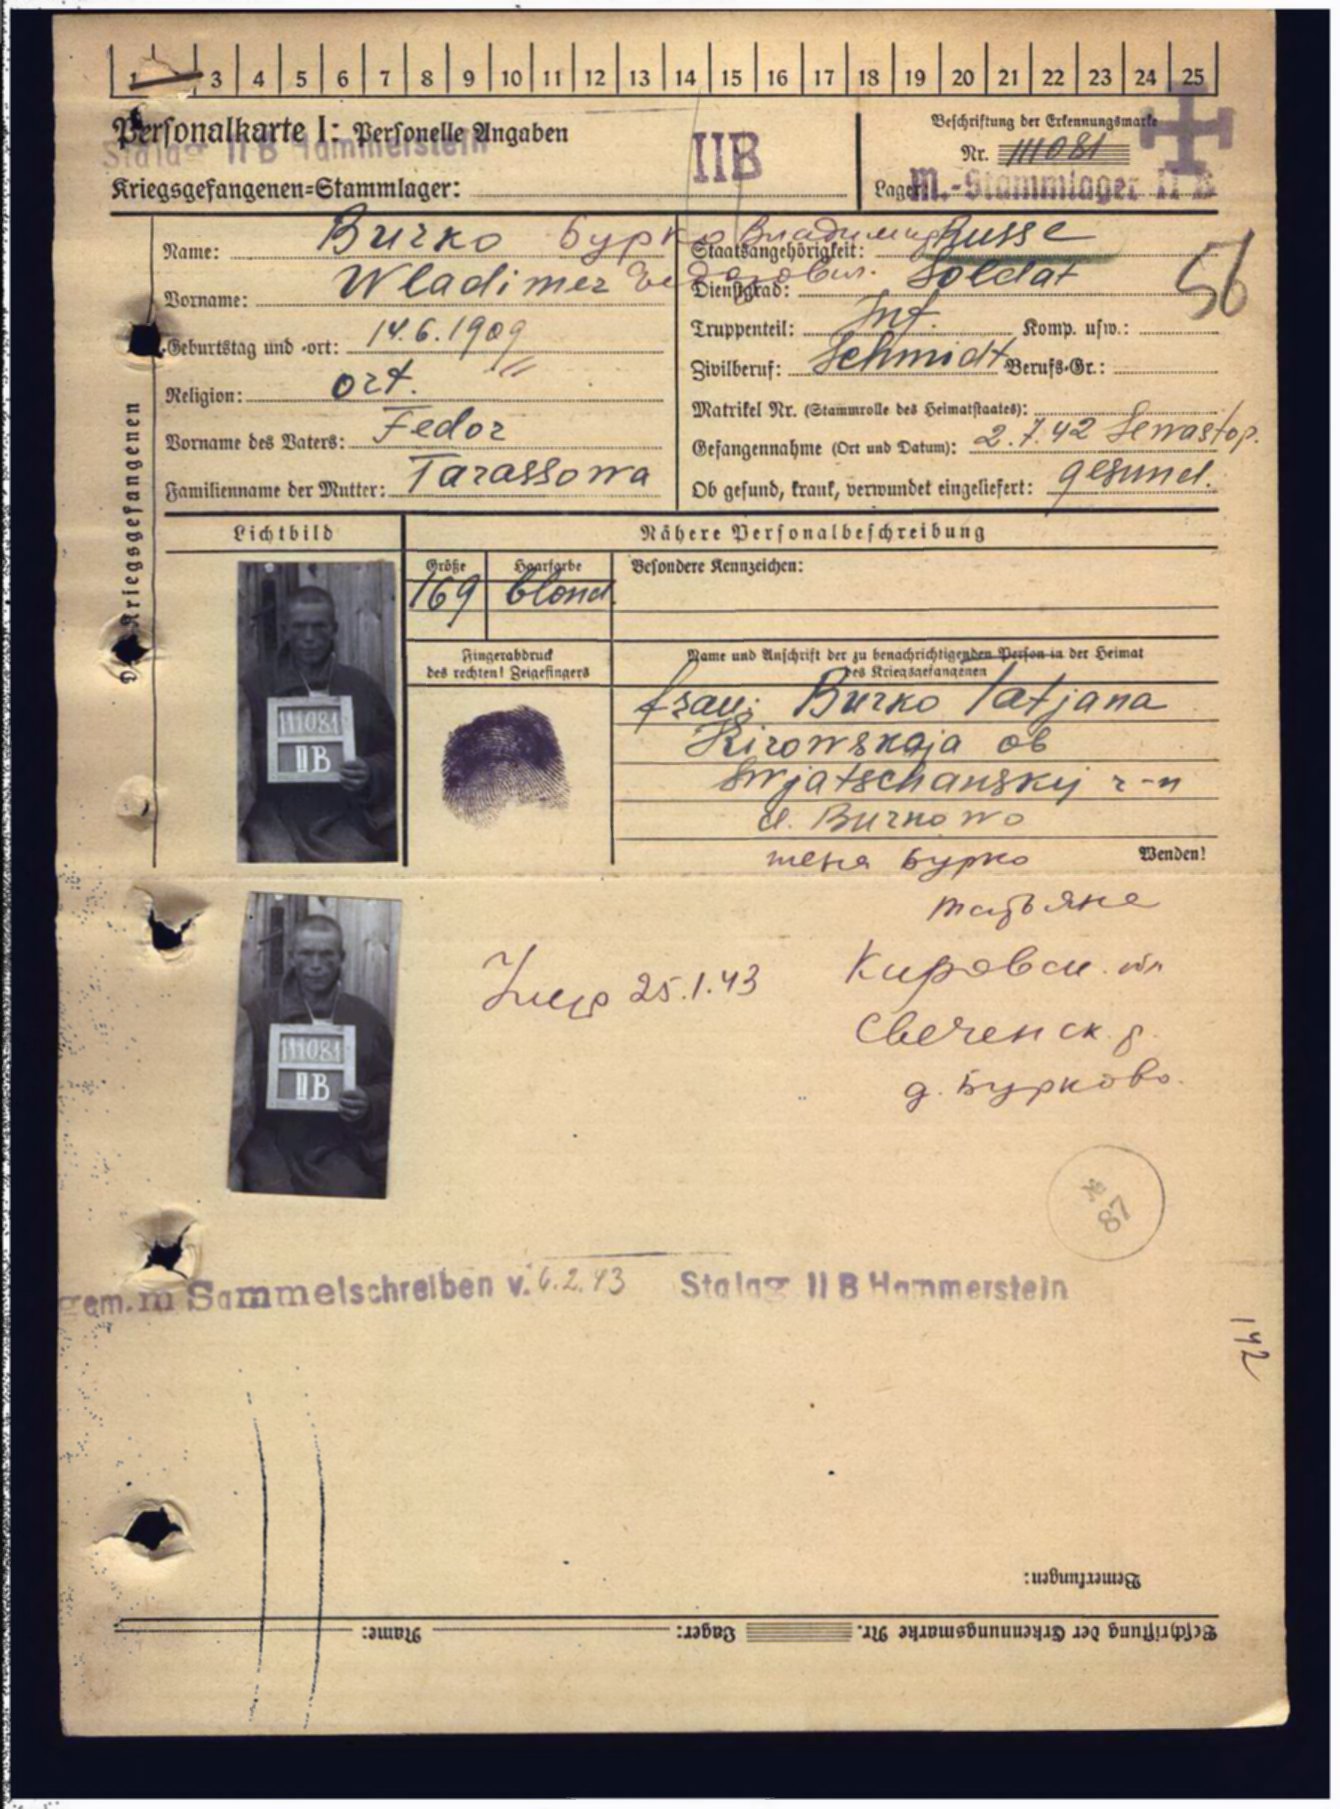 1 3 4 5 6 7 8 9 10 11 12 13 14 15 16 17 18 19 20 21 22 23 24 25
Personalkarte I: Personelle Angaben
Stalag II B Hammerstein
Kriegsgefangenen-Stammlager:
IIB
Beschriftung der Erkennungsmarke
Nr. 111081
Lager: M.-Stammlager II B
Name: Burko Бурко Владимир
Vorname: Wladimer Федорович.
Geburtstag und -ort: 14.6.1909
Religion: ort.
Vorname des Vaters: Fedor
Familienname der Mutter: Tarassowa
Staatsangehörigkeit: Russe
Dienstgrad: Soldat
56
Truppenteil: Inf. Komp. usw.:
Zivilberuf: Schmidt Berufs-Gr.:
Matrikel Nr. (Stammrolle des Heimatstaates):
Gefangennahme (Ort und Datum): 2.7.42 Sewastop.
Ob gesund, krank, verwundet eingeliefert: gesund.
Des Kriegsgefangenen
Lichtbild
Nähere Personalbeschreibung
Größe Haarfarbe Besondere Kennzeichen:
169 blond.
Fingerabdruck
des rechten! Zeigefingers
Name und Anschrift der zu benachrichtigenden Person in der Heimat
des Kriegsgefangenen
frau: Burko Tatjana
Kirowskaja ob
Swjatschanskij r-n
d. Burkowo
жена Бурко
Wenden!
Татьяна
Кировск. обл
Свеченск. р.
д. Бурково.
111081
II B
111081
II B
Умер 25.1.43
№
87
gem. m Sammelschreiben v. 6.2.43 Stalag II B Hammerstein
142
Bemerkungen:
Beschriftung der Erkennungsmarke Nr. Lager: Name: